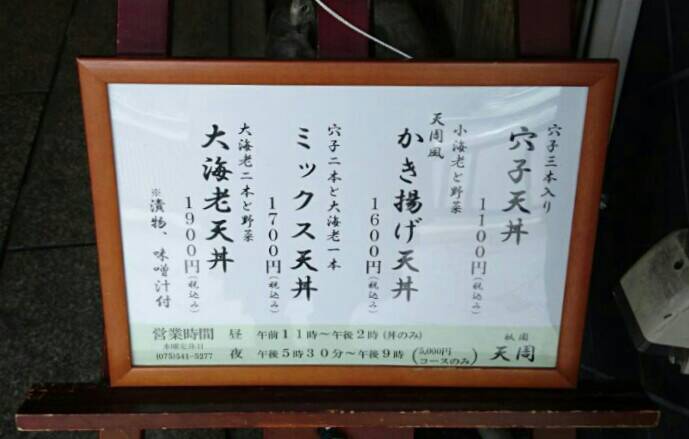 穴子三本入り
穴子天丼
1100円(税込み)
小海老と野菜
天周風
かき揚げ天丼
1600円(税込み)
穴子二本と大海老一本
ミックス天丼
1700円(税込み)
大海老二本と野菜
大海老天丼
1900円(税込み)
※漬物、味噌汁付
営業時間 昼 午前11時～午後2時(丼のみ)
木曜定休日
夜 午後5時30分～午後9時(5,000円コースのみ)
(075)541-5277
祇園
天周